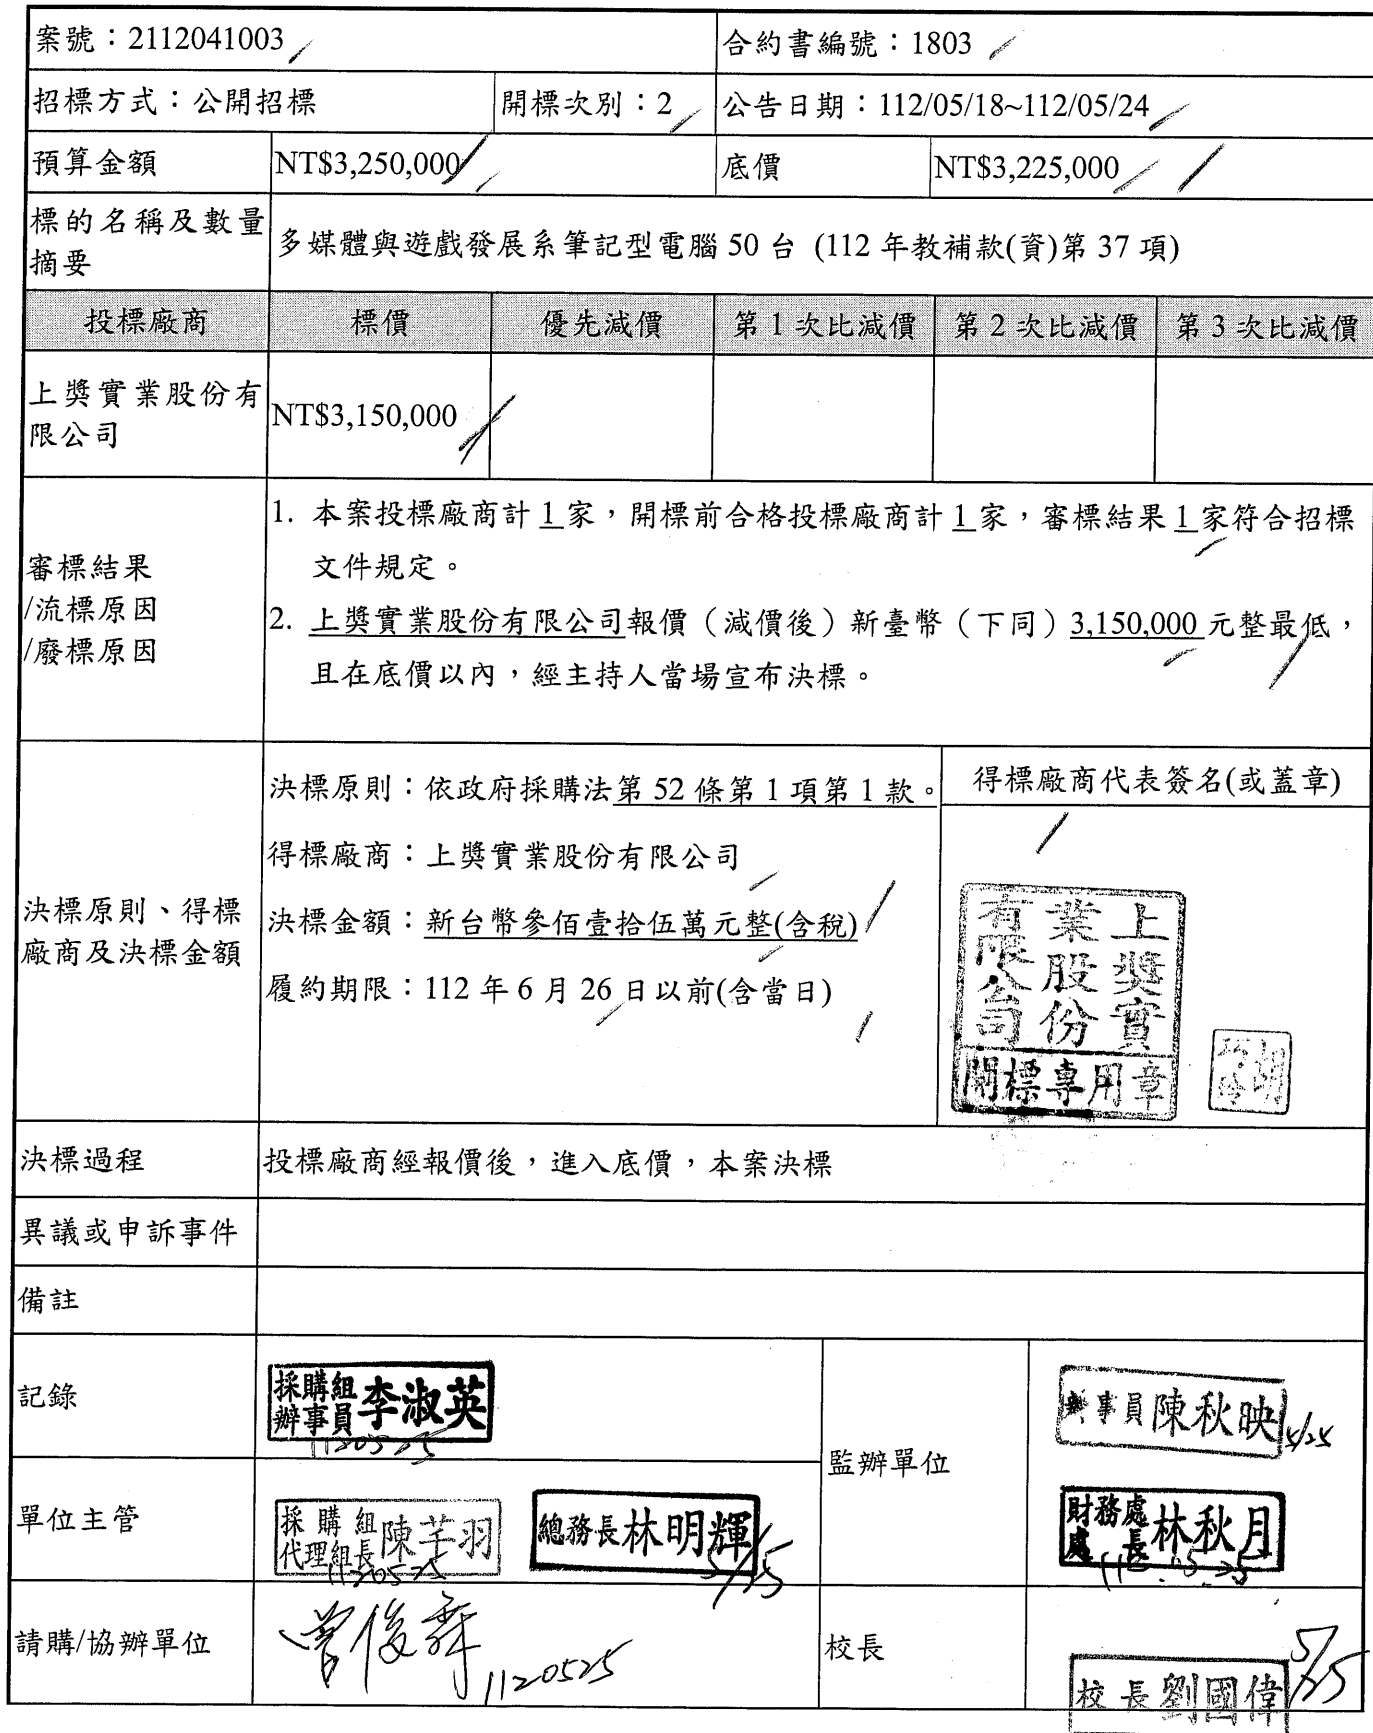 案號：2112041003 合約書編號：1803
招標方式：公開招標 開標次別：2 公告日期：112/05/18~112/05/24
預算金額 NT$3,250,000 底價 NT$3,225,000
標的名稱及數量
摘要
多媒體與遊戲發展系筆記型電腦 50 台 (112 年教補款(資)第 37 項)
投標廠商 標價 優先減價 第 1 次比減價 第 2 次比減價 第 3 次比減價
上獎實業股份有
限公司
NT$3,150,000
審標結果
/流標原因
/廢標原因
1. 本案投標廠商計 1 家，開標前合格投標廠商計 1 家，審標結果 1 家符合招標
文件規定。
2. 上獎實業股份有限公司報價（減價後）新臺幣（下同）3,150,000 元整最低，
且在底價以內，經主持人當場宣布決標。
決標原則、得標
廠商及決標金額
決標原則：依政府採購法第 52 條第 1 項第 1 款。
得標廠商：上獎實業股份有限公司
決標金額：新台幣參佰壹拾伍萬元整(含稅)
履約期限：112 年 6 月 26 日以前(含當日)
得標廠商代表簽名(或蓋章)
上獎實
業股份
有限公司
開標專用章
決標過程 投標廠商經報價後，進入底價，本案決標
異議或申訴事件
備註
記錄
採購組
辦事員 李淑英
1120525
監辦單位
辦事員 陳秋映 5/25
單位主管
採購組
代理組長 陳芊羽
1120525
總務長 林明輝
5/25
財務處
處長 林秋月
112.05.25
請購/協辦單位
曾俊舜 1120525
校長
校長 劉國偉
5/25